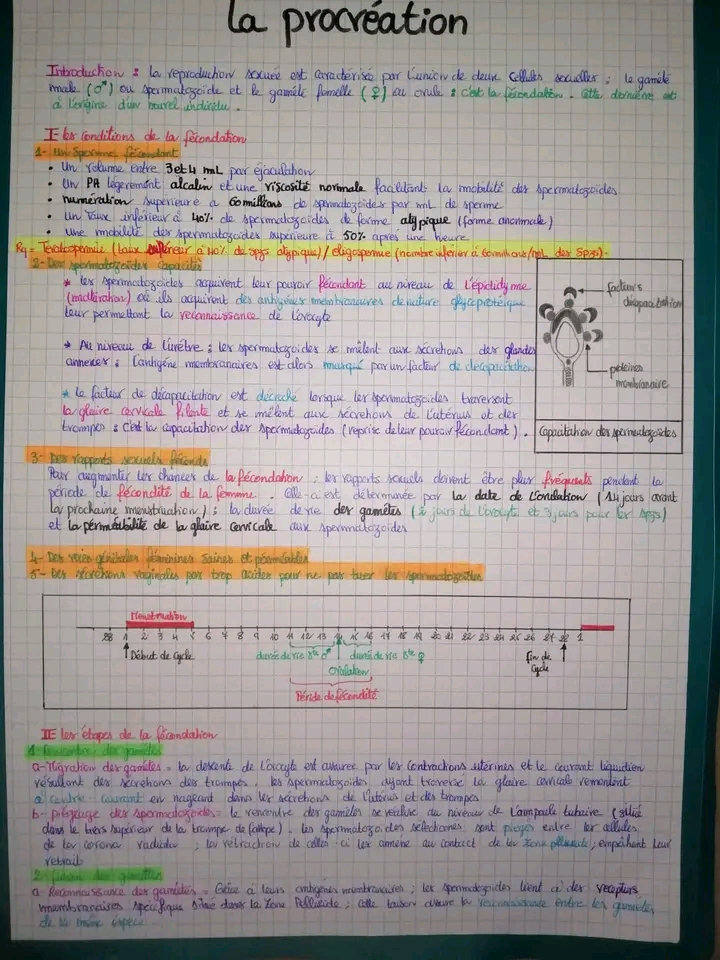 la procréation
Introduction : la reproduction sexuée est caractérisée par l'union de deux cellules sexuelles : le gamète
male (♂) ou spermatozoïde et le gaméte femelle (♀) ou ovule : c'est la fécondation. Cette dernière est
à l'origine d'un nouvel individu.
I- les conditions de la fécondation
1- Un Sperme fécondant
• Un volume entre 3 et 4 mL par éjaculation
• Un PH légerement alcalin et une viscosité normale facilitant la mobilité des spermatozoides
• numération superieure à 60 millions de spermatozoides par mL de sperme
• Un Taux inférieur à 40% de spermatozoïdes de forme atypique (forme anormale)
• Une mobilité des spermatozoïdes supérieure à 50% après une heure
Rq = Teratospermie (taux supérieur à 40% de spzs atypique) / oligospermie (nombre inférieur à 60 millions/mL des Spzs).
2- Des spermatozoïdes Capacités
* les spermatozoides acquirent leur pouvoir fécondant au niveau de l'épididyme
(maturation) où ils acquirent des antigènes membranaires de nature glycoprotéique
leur permettant la reconnaissance de l'ovocyte
* Au niveau de l'urètre ; les spermatozoides se mêlent aux sécrétions des glandes
annexes ; l'antigène membranaires est alors masqué par un facteur de décapacitation
* le facteur de décapacitation est décroché lorsque les spermatozoides traversent
la glaire cervicale filante et se mêlent aux sécrétions de l'utérus et des
trompes : c'est la capacitation des spermatozoides (reprise de leur pouvoir fécondant).
facteurs
décapacitation
protéines
membranaire
Capacitation des spermatozoides
3- Des rapports sexuels féconds
Pour augmenter les chances de la fécondation ; les rapports sexuels doivent être plus fréquents pendant la
période de fécondité de la femme. Celle-ci est déterminée par la date de l'ovulation (14 jours avant
la prochaine menstruation) ; la durée de vie des gamètes (2 jours de l'ovocyte et 3 jours pour les spzs)
et la perméabilité de la glaire cervicale aux spermatozoides
4- Des voies génitales féminines saines et perméables
5- Des sécrétions vaginales pas trop acides pour ne pas tuer les spermatozoides
Menstruation
28 1 2 3 4 5 6 7 8 9 10 11 12 13 14 15 16 17 18 19 20 21 22 23 24 25 26 27 28 1
Début de Cycle
durée de vie gte ♂
durée de vie gte ♀
fin de
Cycle
Ovulation
Période de fécondité
II- les étapes de la fécondation
1- Rencontre des gamètes
a- Migration des gamètes = la descente de l'ovocyte est assurée par les contractions utérines et le courant liquidien
résultant des sécrétions des trompes. les spermatozoides ayant traversé la glaire cervicale remontent
à contre-courant en nageant dans les sécrétions de l'utérus et des trompes
b- piégeage des spermatozoides = la rencontre des gamètes se réalise au niveau de l'ampoule tubaire (située
dans le tiers supérieur de la trompe de fallope). les spermatozoides selectionnés sont piégés entre les cellules
de la corona radiata ; la rétraction de celles-ci les amène au contact de la zone pellucide ; empêchant leur
retrait
2- fusion des gamètes
a- Reconnaissance des gamètes = Grâce à leurs antigènes membranaires ; les spermatozoides lient à des recepteurs
membranaires spécifique située dans la zone Pellucide ; cette liaison assure la reconnaissance entre les gamètes
de la même espèce.